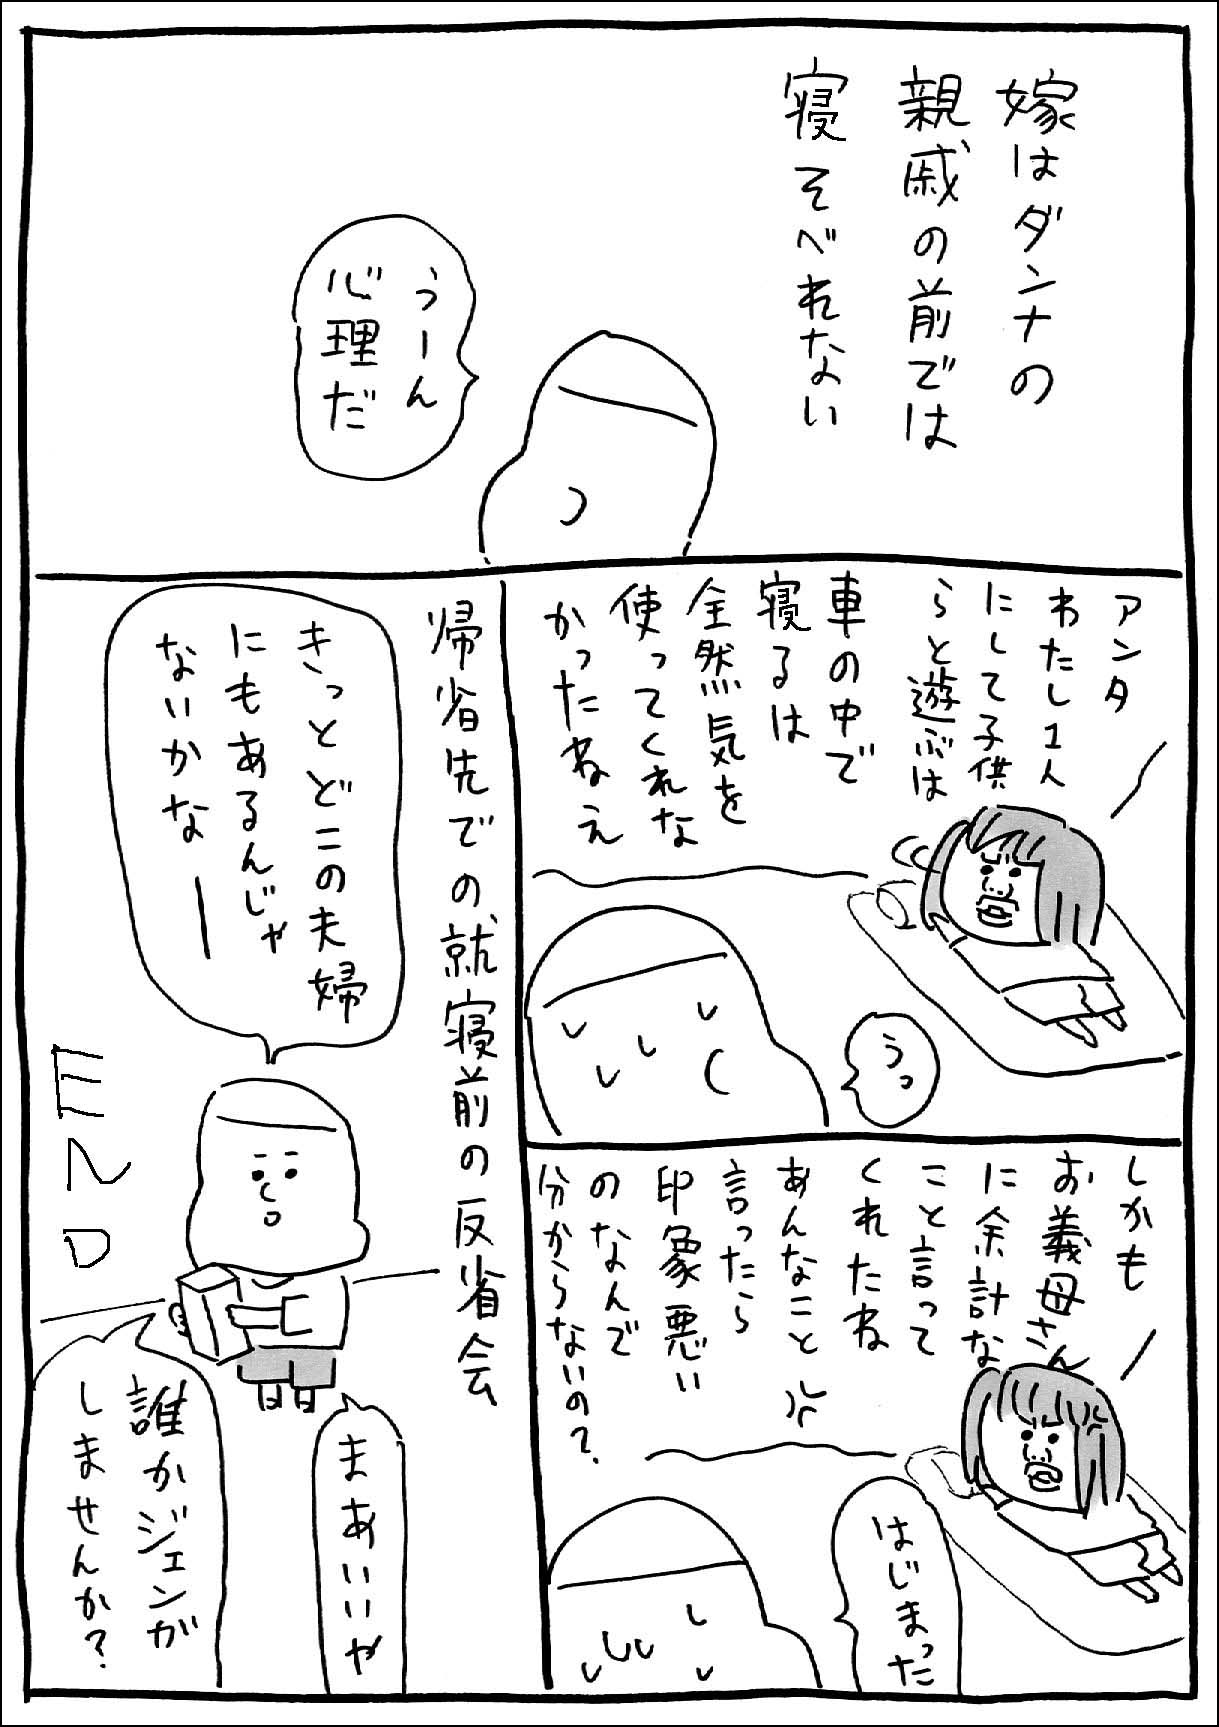 嫁はダンナの
親戚の前では
寝そべれない
うーん
心理だ
アンタ
わたし1人
にして子供
らと遊ぶは
車の中で
寝るは
全然気を
使ってくれな
かったねえ
うっ
しかも
お義母さん
に余計な
こと言って
くれたね
あんなこと
言ったら
印象悪い
のなんで
分からないの?
はじまった
帰省先での就寝前の反省会
きっとどこの夫婦
にもあるんじゃ
ないかなー
まあいいや
誰かジェンガ
しませんか?
END